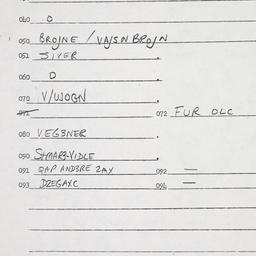 040 D
050 BROJNE / VAJSN BROJN
051 SIVER
060 D
070 V/WJOGN
072 072 FUR DLC
080 VEG3NER
090 StMAR3-VIDLE
091 QAP AND3RE 2AX 092 —
093 DZEGAXC 094 —